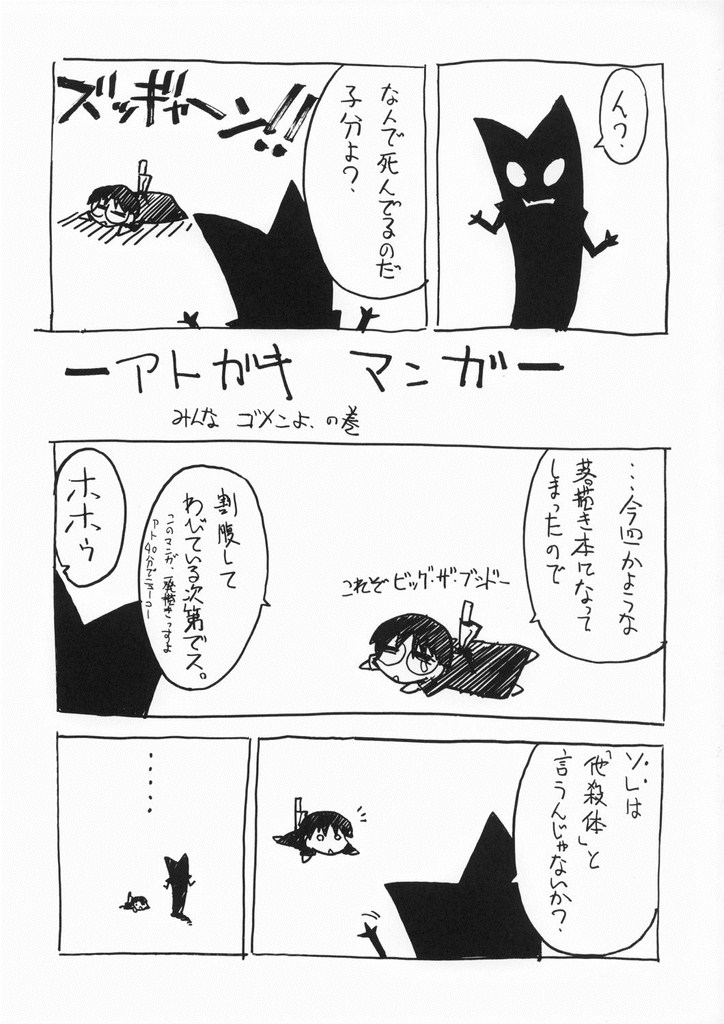 ん?
なんで死んでるのだ
子分よ?
ズッギャーン!!
ーアトガキ マンガー
みんな ゴメンよ、の巻
…今回かような
落描き本になって
しまったので
これぞビッグ・ザ・ブンドー
割腹して
わびている次第でス。
このマンガ、一発描きっすよ
アト40分でニューコー
ホホゥ
ソレは
「他殺体」と
言うんじゃないか?
・・・・・